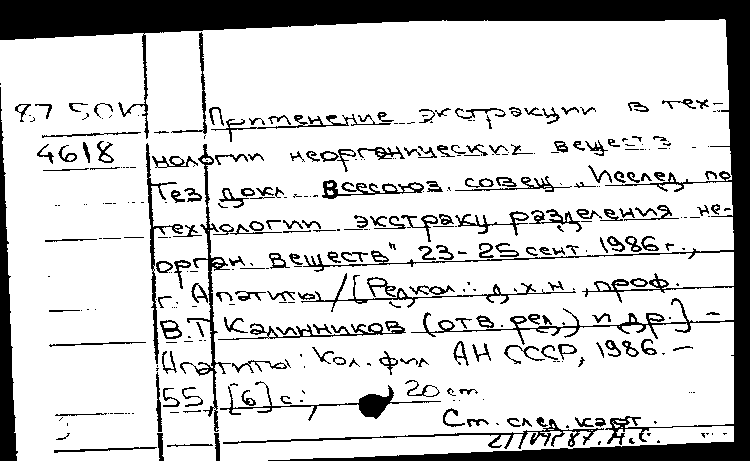 87 50Ю Применение экстракции в тех-
4618 нологии неорганических веществ
Тез докл. Всесоюз. совещ „Исслед. по
технологии экстракц. разделения не-
орган. веществ", 23-25 сент. 1986 г.,
г. Апатиты / [Редкол.: д.х.н., проф.
В.Т. Калинников (отв. ред.) и др.] -
Апатиты: Кол. фил АН СССР, 1986. -
55, [6] с.; 20 см
См. след. карт.